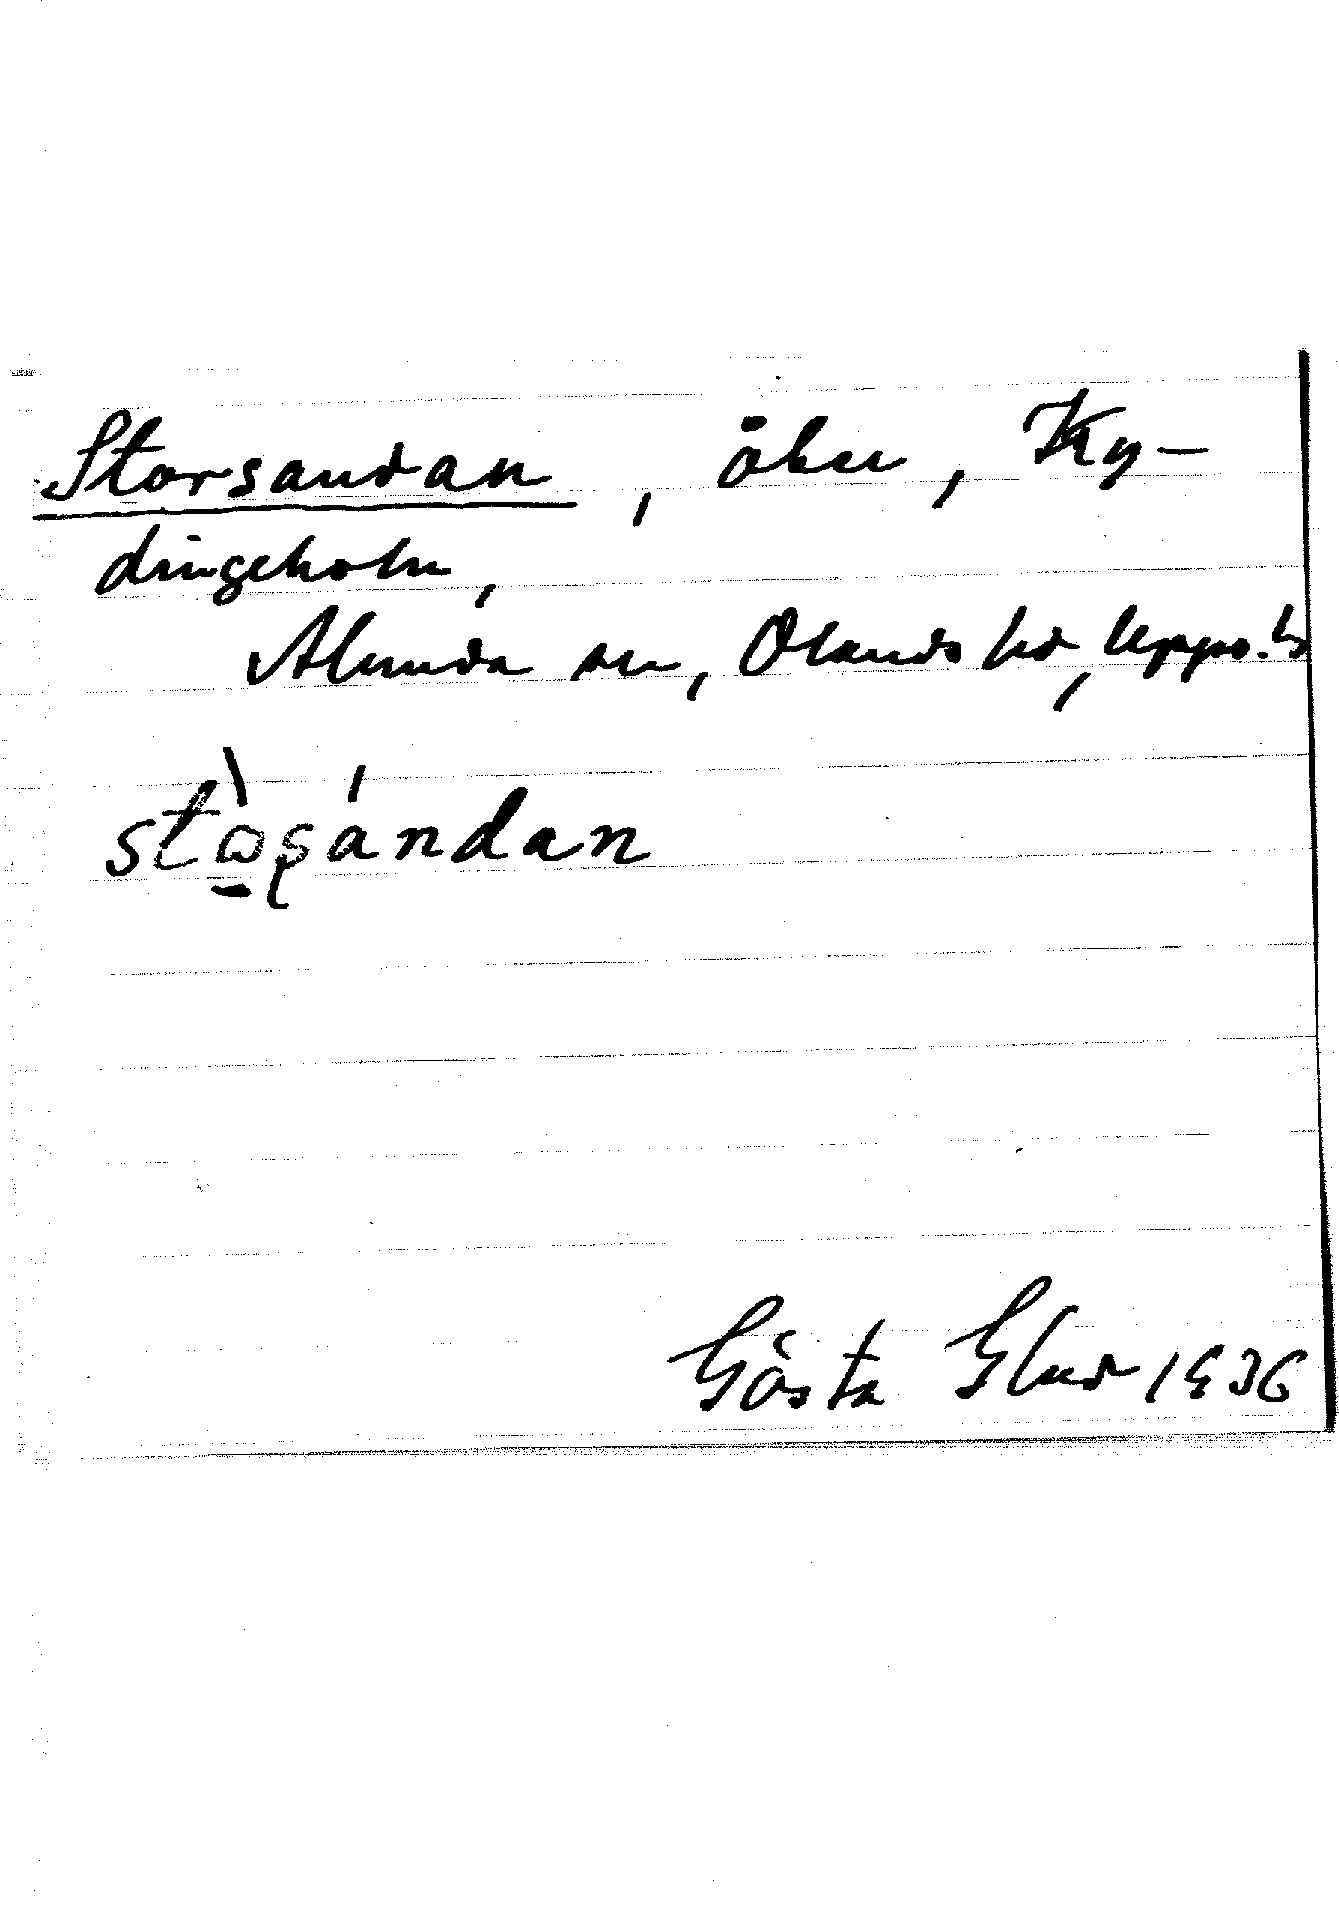 Storsandan, åker, Ky-
dingeholm,
Alunda sn, Olands hd, Upps. l.
stò̱ʂándan
Gösta Elund 1936